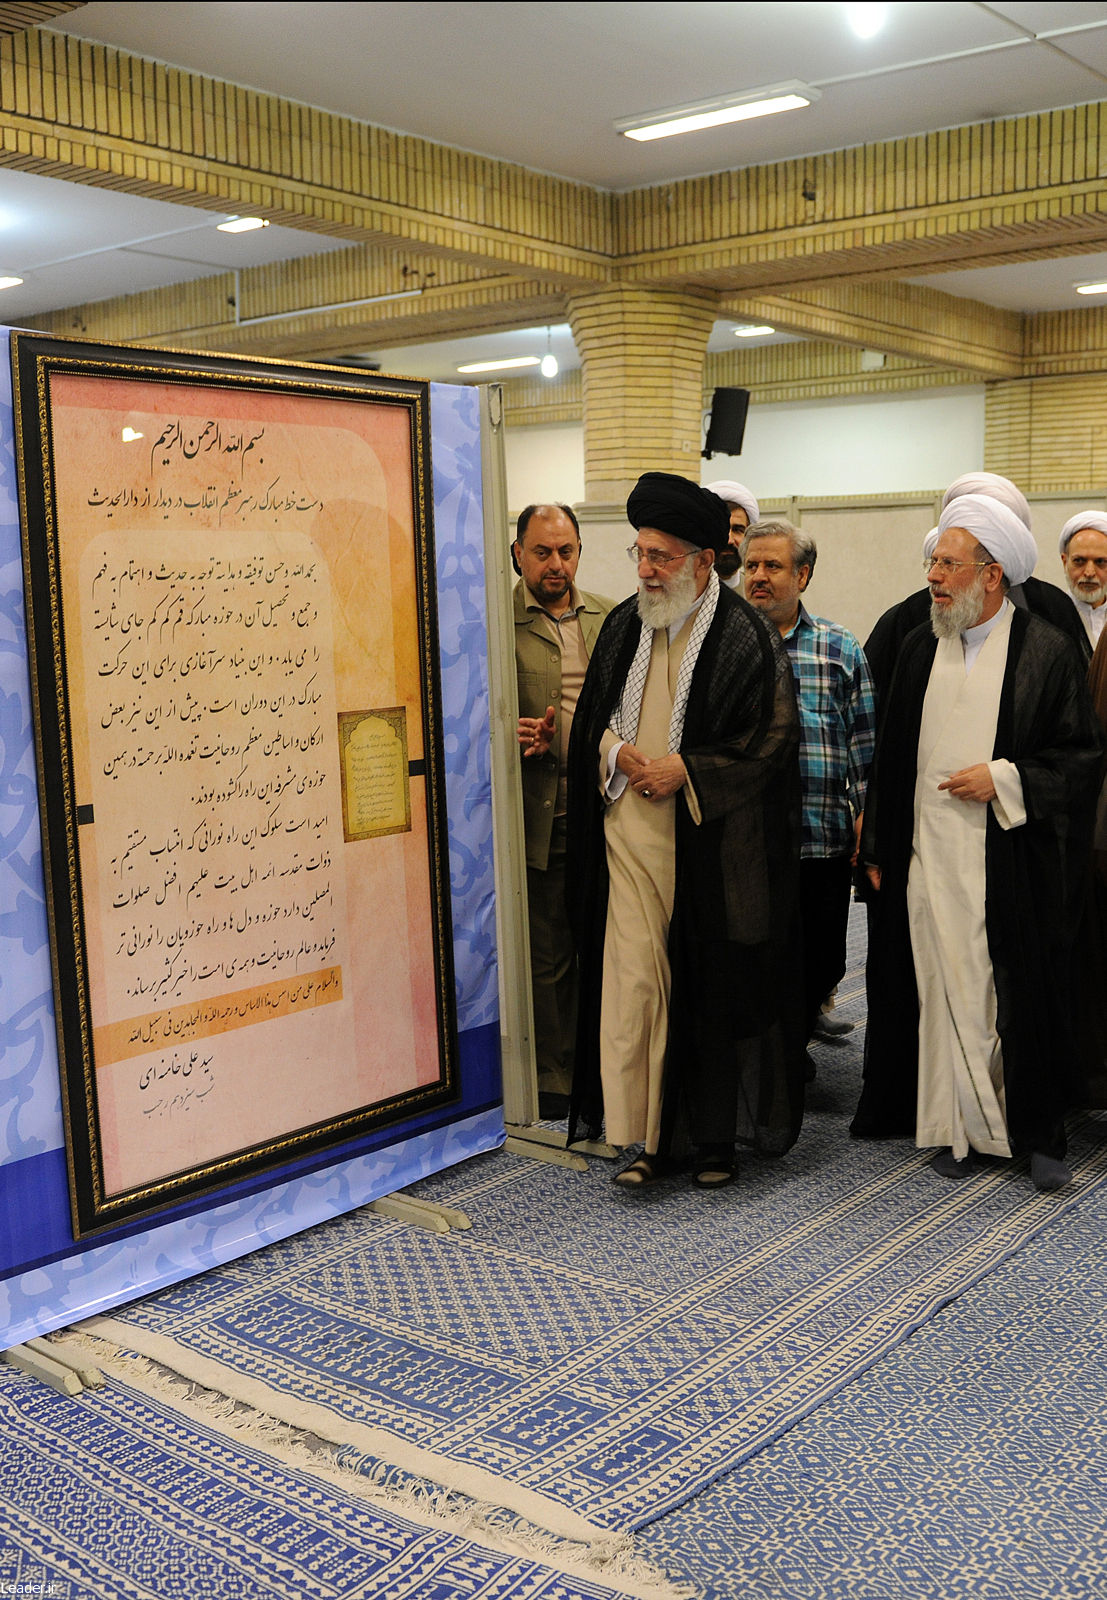 بسم الله الرحمن الرحیم
دست خط مبارک رهبر معظم انقلاب در دیدار از دارالحدیث
بحمدالله و حسن توفیقه و هدایته توجه به حدیث و اهتمام به فهم
و جمع و تحصیل آن در حوزه مبارکه قم کم کم جای شایسته
را می یابد. و این بنیاد سرآغازی برای این حرکت
مبارک در این دوران است. پیش از این نیز بعض
ارکان و اساطین معظم روحانیت تغمده الله برحمته در همین
حوزه‌ی مشرفه این راه را گشوده بودند.
امید است سلوک این راه نورانی که انتساب مستقیم به
ذوات مقدسه ائمه اهل بیت علیهم افضل صلوات
المصلین دارد حوزه و دل ها و راه حوزویان را نورانی تر
فرماید و عالم روحانیت و همه‌ی امت را خیر کثیر برساند.
والسلام علی من اسس هذا الاساس و رحمه الله و المجاهدین فی سبیل الله
سید علی خامنه ای
شب سیزدهم رجب
Leader.ir